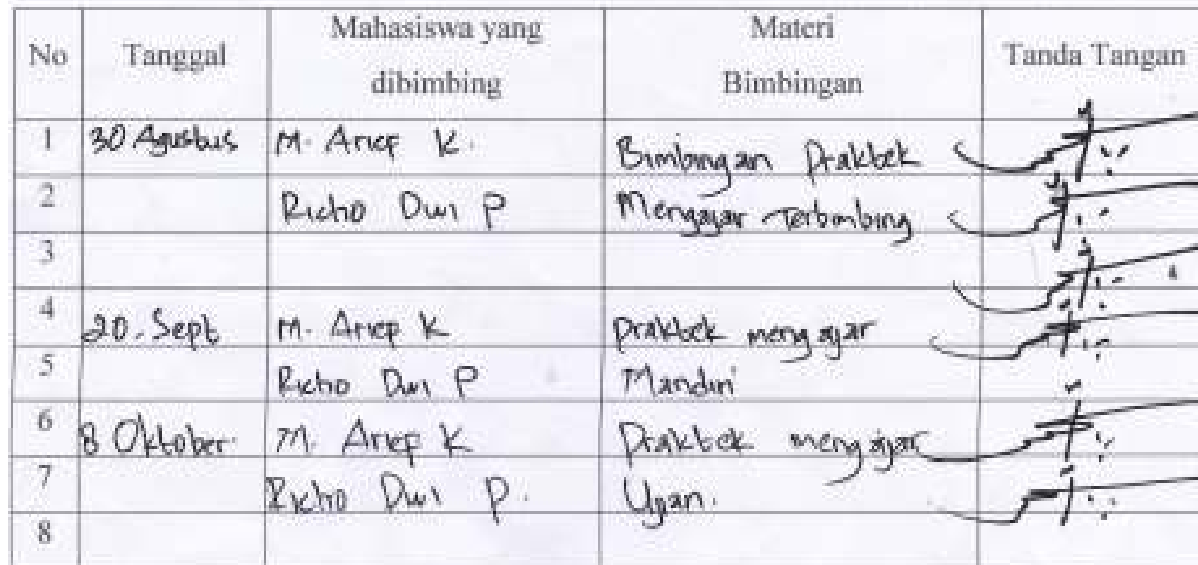 No Tanggal Mahasiswa yang dibimbing Materi Bimbingan Tanda Tangan
1 30 Agustus M. Arief K. Bimbingan Praktek
2 Richo Dwi P Mengajar Terbimbing
3
4 20. Sept M. Arief K Praktek mengajar
5 Richo Dwi P Mandiri
6 8 Oktober M. Arief K Praktek mengajar
7 Richo Dwi P. Ujian.
8